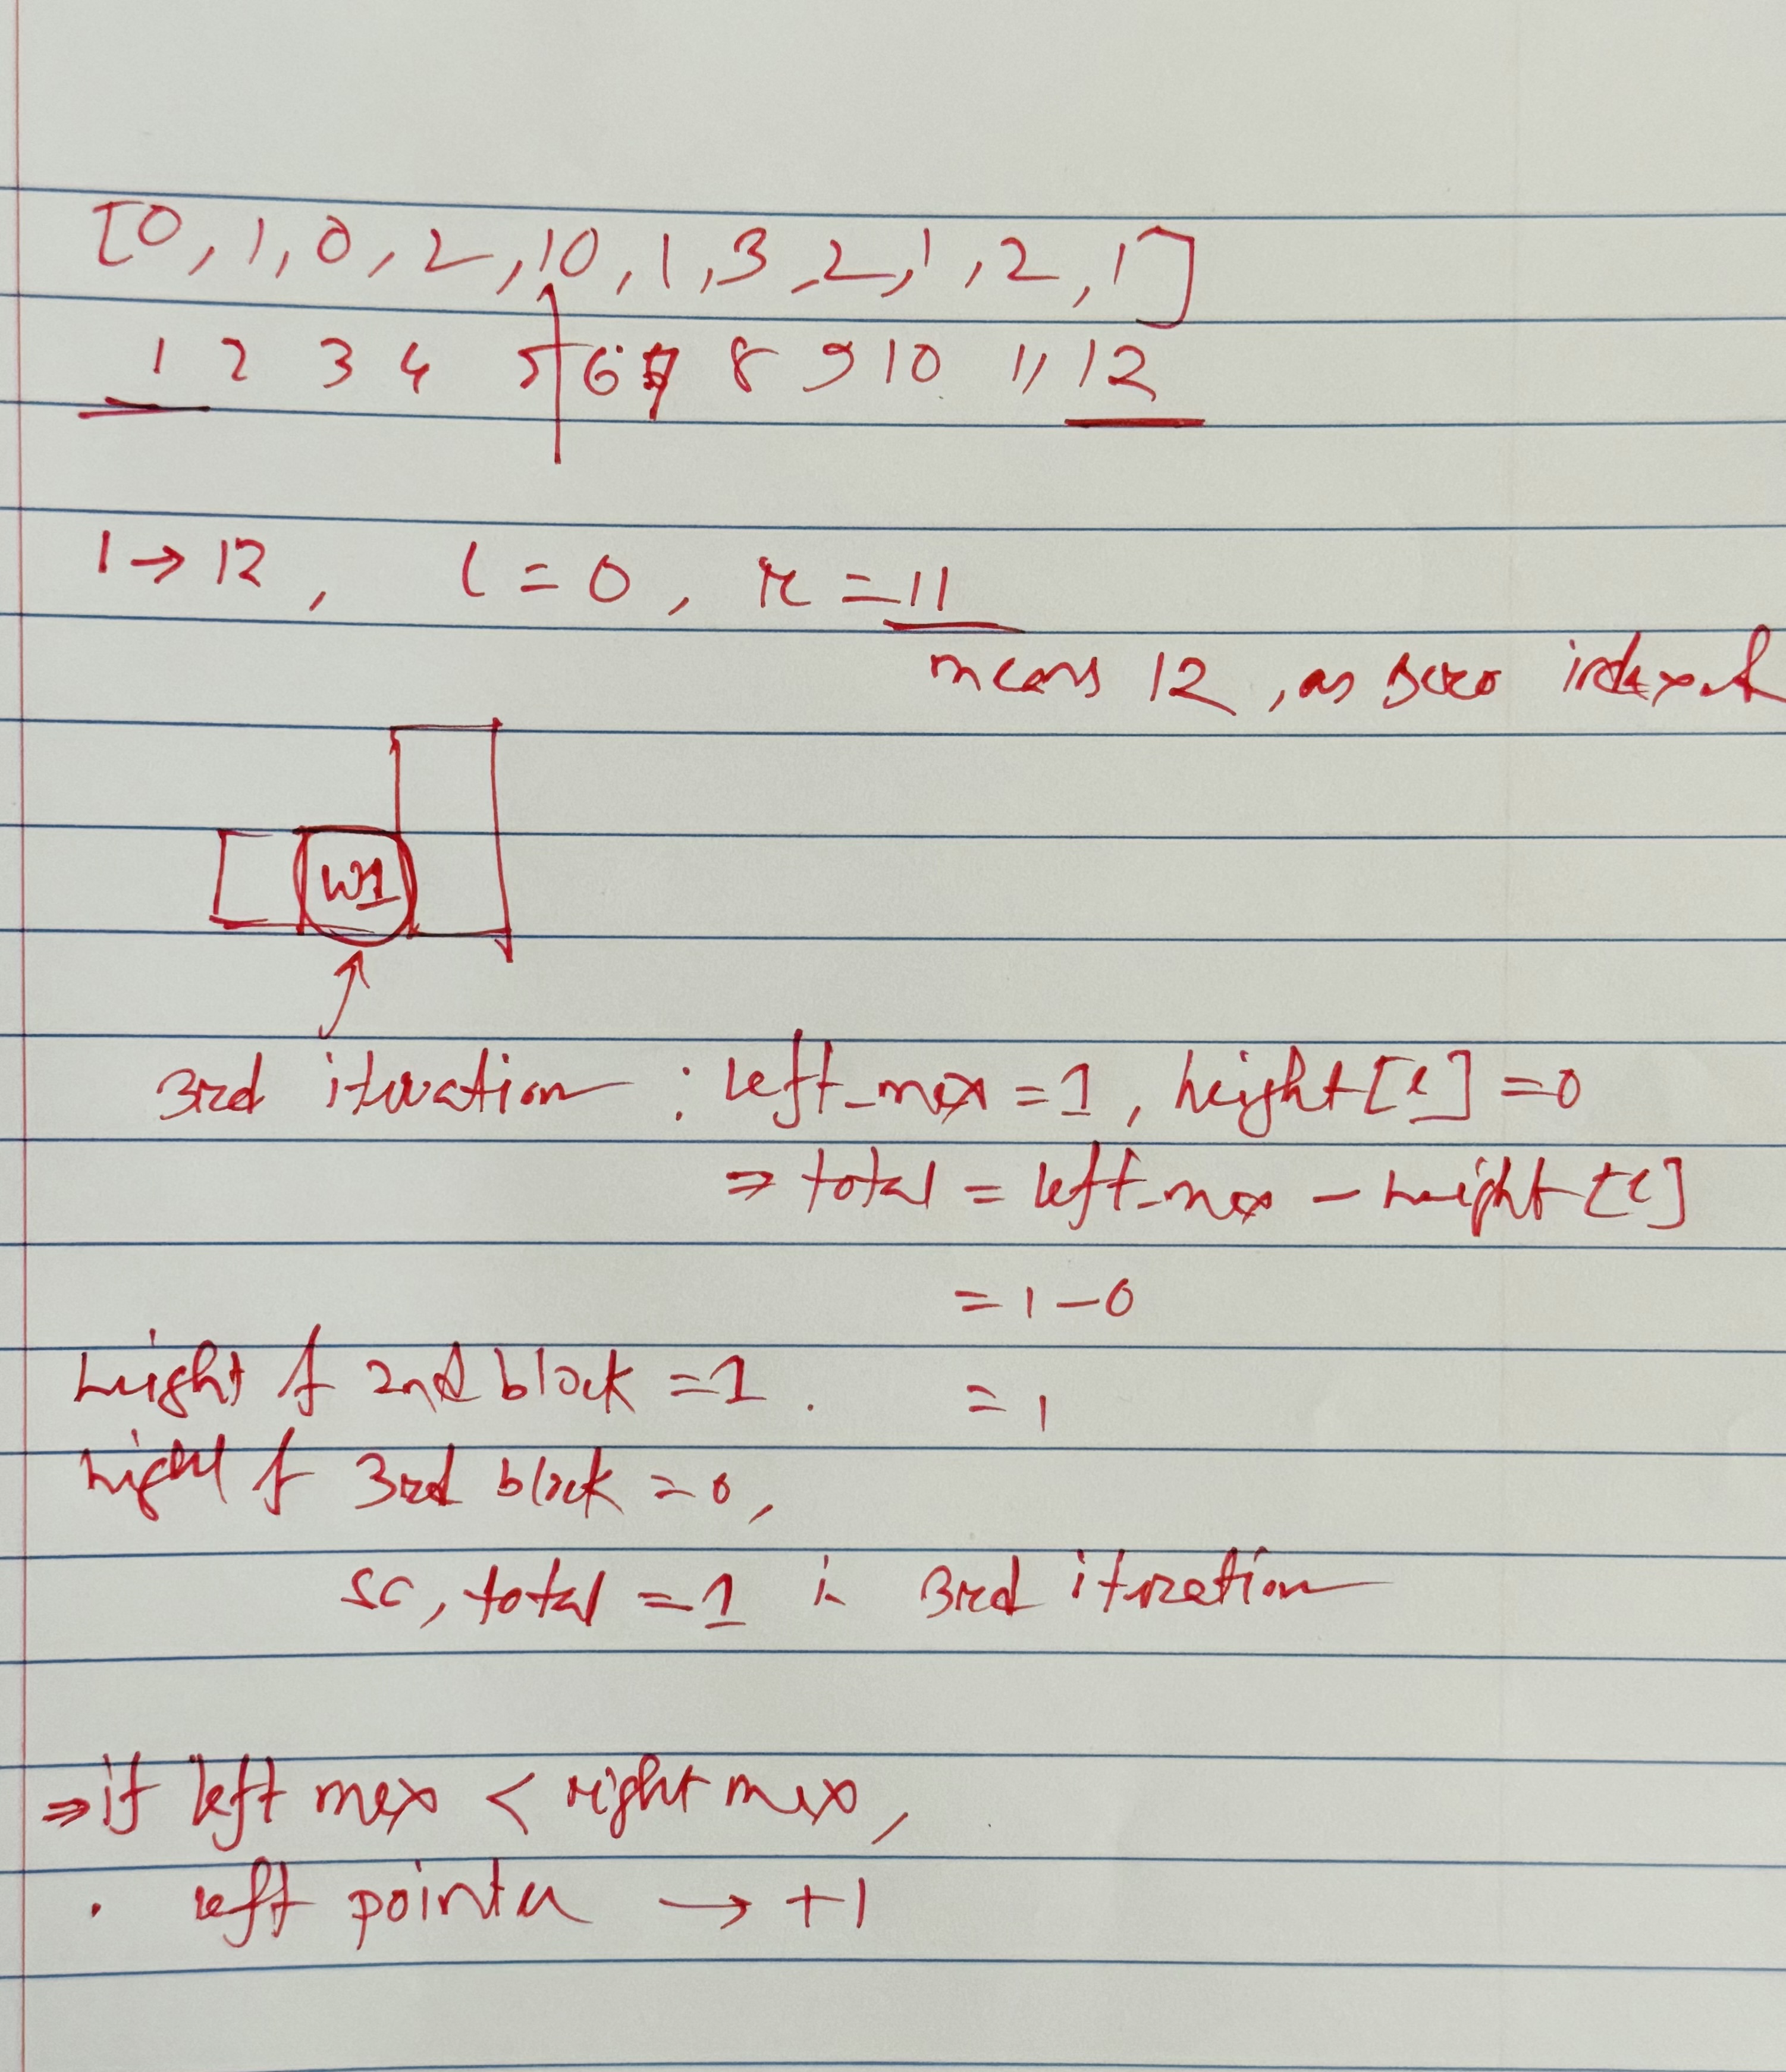 [0, 1, 0, 2, 10, 1, 3, 2, 1, 2, 1]
1 2 3 4 5 6 7 8 9 10 11 12
1 → 12, l = 0, r = 11
means 12, as zero indexed
W1
3rd iteration : left_max = 1, height[l] = 0
⇒ total = left_max - height[l]
= 1 - 0
height of 2nd block = 1. = 1
height of 3rd block = 0,
so, total = 1 in 3rd iteration
⇒ if left max < right max,
left pointer → +1